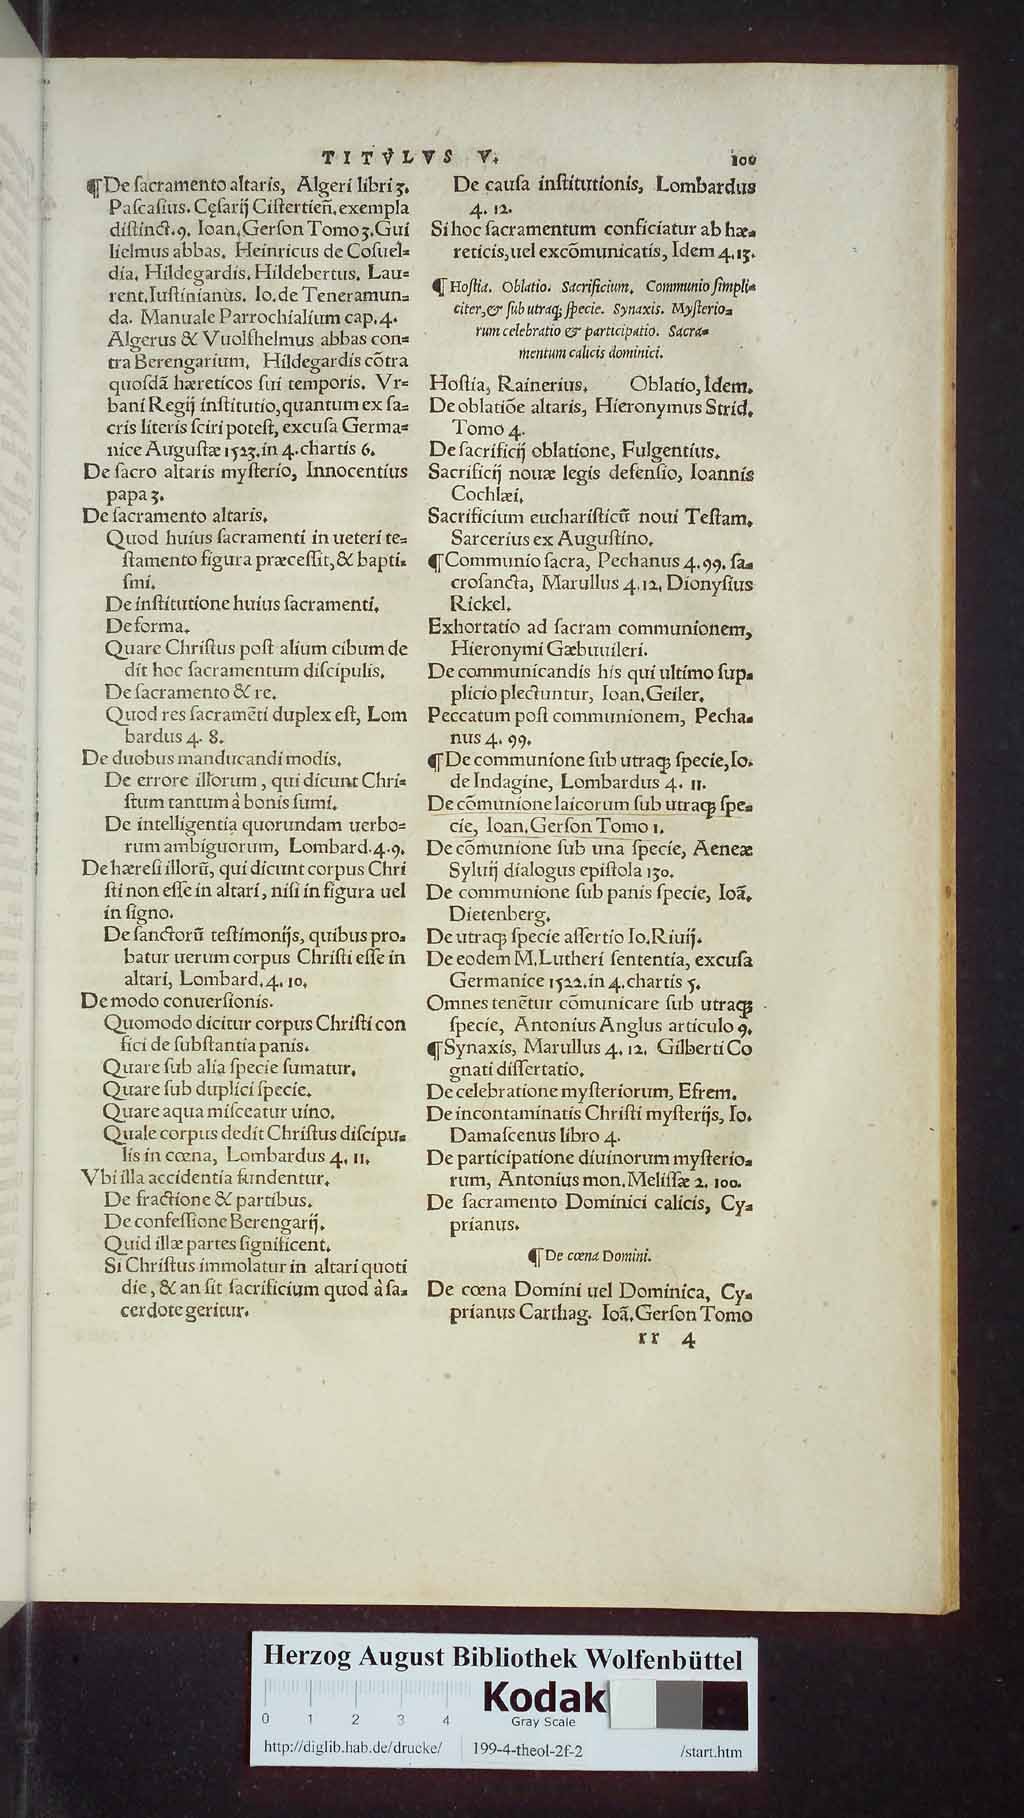 TITVLVS V. 100
¶ De sacramento altaris, Algeri libri 3.
Pascasius. Cęsarij Cistertień. exempla
distinct. 9. Ioan. Gerson Tomo 3. Gui
lielmus abbas. Heinricus de Cosuel=
dia. Hildegardis. Hildebertus. Lau=
rent. Iustinianus. Io. de Teneramun=
da. Manuale Parrochialium cap. 4.
Algerus & Vuolfhelmus abbas con=
tra Berengarium. Hildegardis cōtra
quosdā hæreticos sui temporis. Vr=
bani Regij institutio, quantum ex sa=
cris literis sciri potest, excusa Germa=
nice Augustæ 1523. in 4. chartis 6.
De sacro altaris mysterio, Innocentius
papa 3.
De sacramento altaris.
Quod huius sacramenti in ueteri te=
stamento figura præcessit, & bapti=
smi.
De institutione huius sacramenti.
De forma.
Quare Christus post alium cibum de
dit hoc sacramentum discipulis.
De sacramento & re.
Quod res sacramēti duplex est, Lom
bardus 4. 8.
De duobus manducandi modis.
De errore illorum, qui dicunt Chri=
stum tantum à bonis sumi.
De intelligentia quorundam uerbo=
rum ambiguorum, Lombard. 4. 9.
De hæresi illorū, qui dicunt corpus Chri
sti non esse in altari, nisi in figura uel
in signo.
De sanctorū testimonijs, quibus pro=
batur uerum corpus Christi esse in
altari, Lombard. 4. 10.
De modo conuersionis.
Quomodo dicitur corpus Christi con
fici de substantia panis.
Quare sub alia specie sumatur.
Quare sub duplici specie.
Quare aqua misceatur uino.
Quale corpus dedit Christus discipu=
lis in cœna, Lombardus 4. 11.
Vbi illa accidentia fundentur.
De fractione & partibus.
De confessione Berengarij.
Quid illæ partes significent.
Si Christus immolatur in altari quoti
die, & an sit sacrificium quod à sa=
cerdote geritur.
De causa institutionis, Lombardus
4. 12.
Si hoc sacramentum conficiatur ab hæ=
reticis, uel excōmunicatis, Idem 4. 13.
¶ Hostia. Oblatio. Sacrificium. Communio simpli=
citer, & sub utraq; specie. Synaxis. Mysterio=
rum celebratio & participatio. Sacra=
mentum calicis dominici.
Hostia, Rainerius. Oblatio, Idem.
De oblatiōe altaris, Hieronymus Strid.
Tomo 4.
De sacrificij oblatione, Fulgentius.
Sacrificij nouæ legis defensio, Ioannis
Cochlæi.
Sacrificium eucharisticū noui Testam.
Sarcerius ex Augustino.
¶ Communio sacra, Pechanus 4. 99. sa=
crosancta, Marullus 4. 12. Dionysius
Rickel.
Exhortatio ad sacram communionem,
Hieronymi Gæbuuileri.
De communicandis his qui ultimo sup=
plicio plectuntur, Ioan. Geiler.
Peccatum post communionem, Pecha=
nus 4. 99.
¶ De communione sub utraq; specie, Io.
de Indagine, Lombardus 4. 11.
De cōmunione laicorum sub utraq; spe=
cie, Ioan. Gerson Tomo 1.
De cōmunione sub una specie, Aeneæ
Syluij dialogus epistola 130.
De communione sub panis specie, Ioā.
Dietenberg.
De utraq; specie assertio Io. Riuij.
De eodem M. Lutheri sententia, excusa
Germanice 1522. in 4. chartis 5.
Omnes tenētur cōmunicare sub utraq;
specie, Antonius Anglus articulo 9.
¶ Synaxis, Marullus 4. 12. Gilberti Co
gnati dissertatio.
De celebratione mysteriorum, Efrem.
De incontaminatis Christi mysterijs, Io.
Damascenus libro 4.
De participatione diuinorum mysterio=
rum, Antonius mon. Melissæ 2. 100.
De sacramento Dominici calicis, Cy=
prianus.
¶ De cœna Domini.
De cœna Domini uel Dominica, Cy=
prianus Carthag. Ioā. Gerson Tomo
rr 4
Herzog August Bibliothek Wolfenbüttel
Kodak
0 1 2 3 4 Gray Scale
http://diglib.hab.de/drucke/ 199-4-theol-2f-2 /start.htm